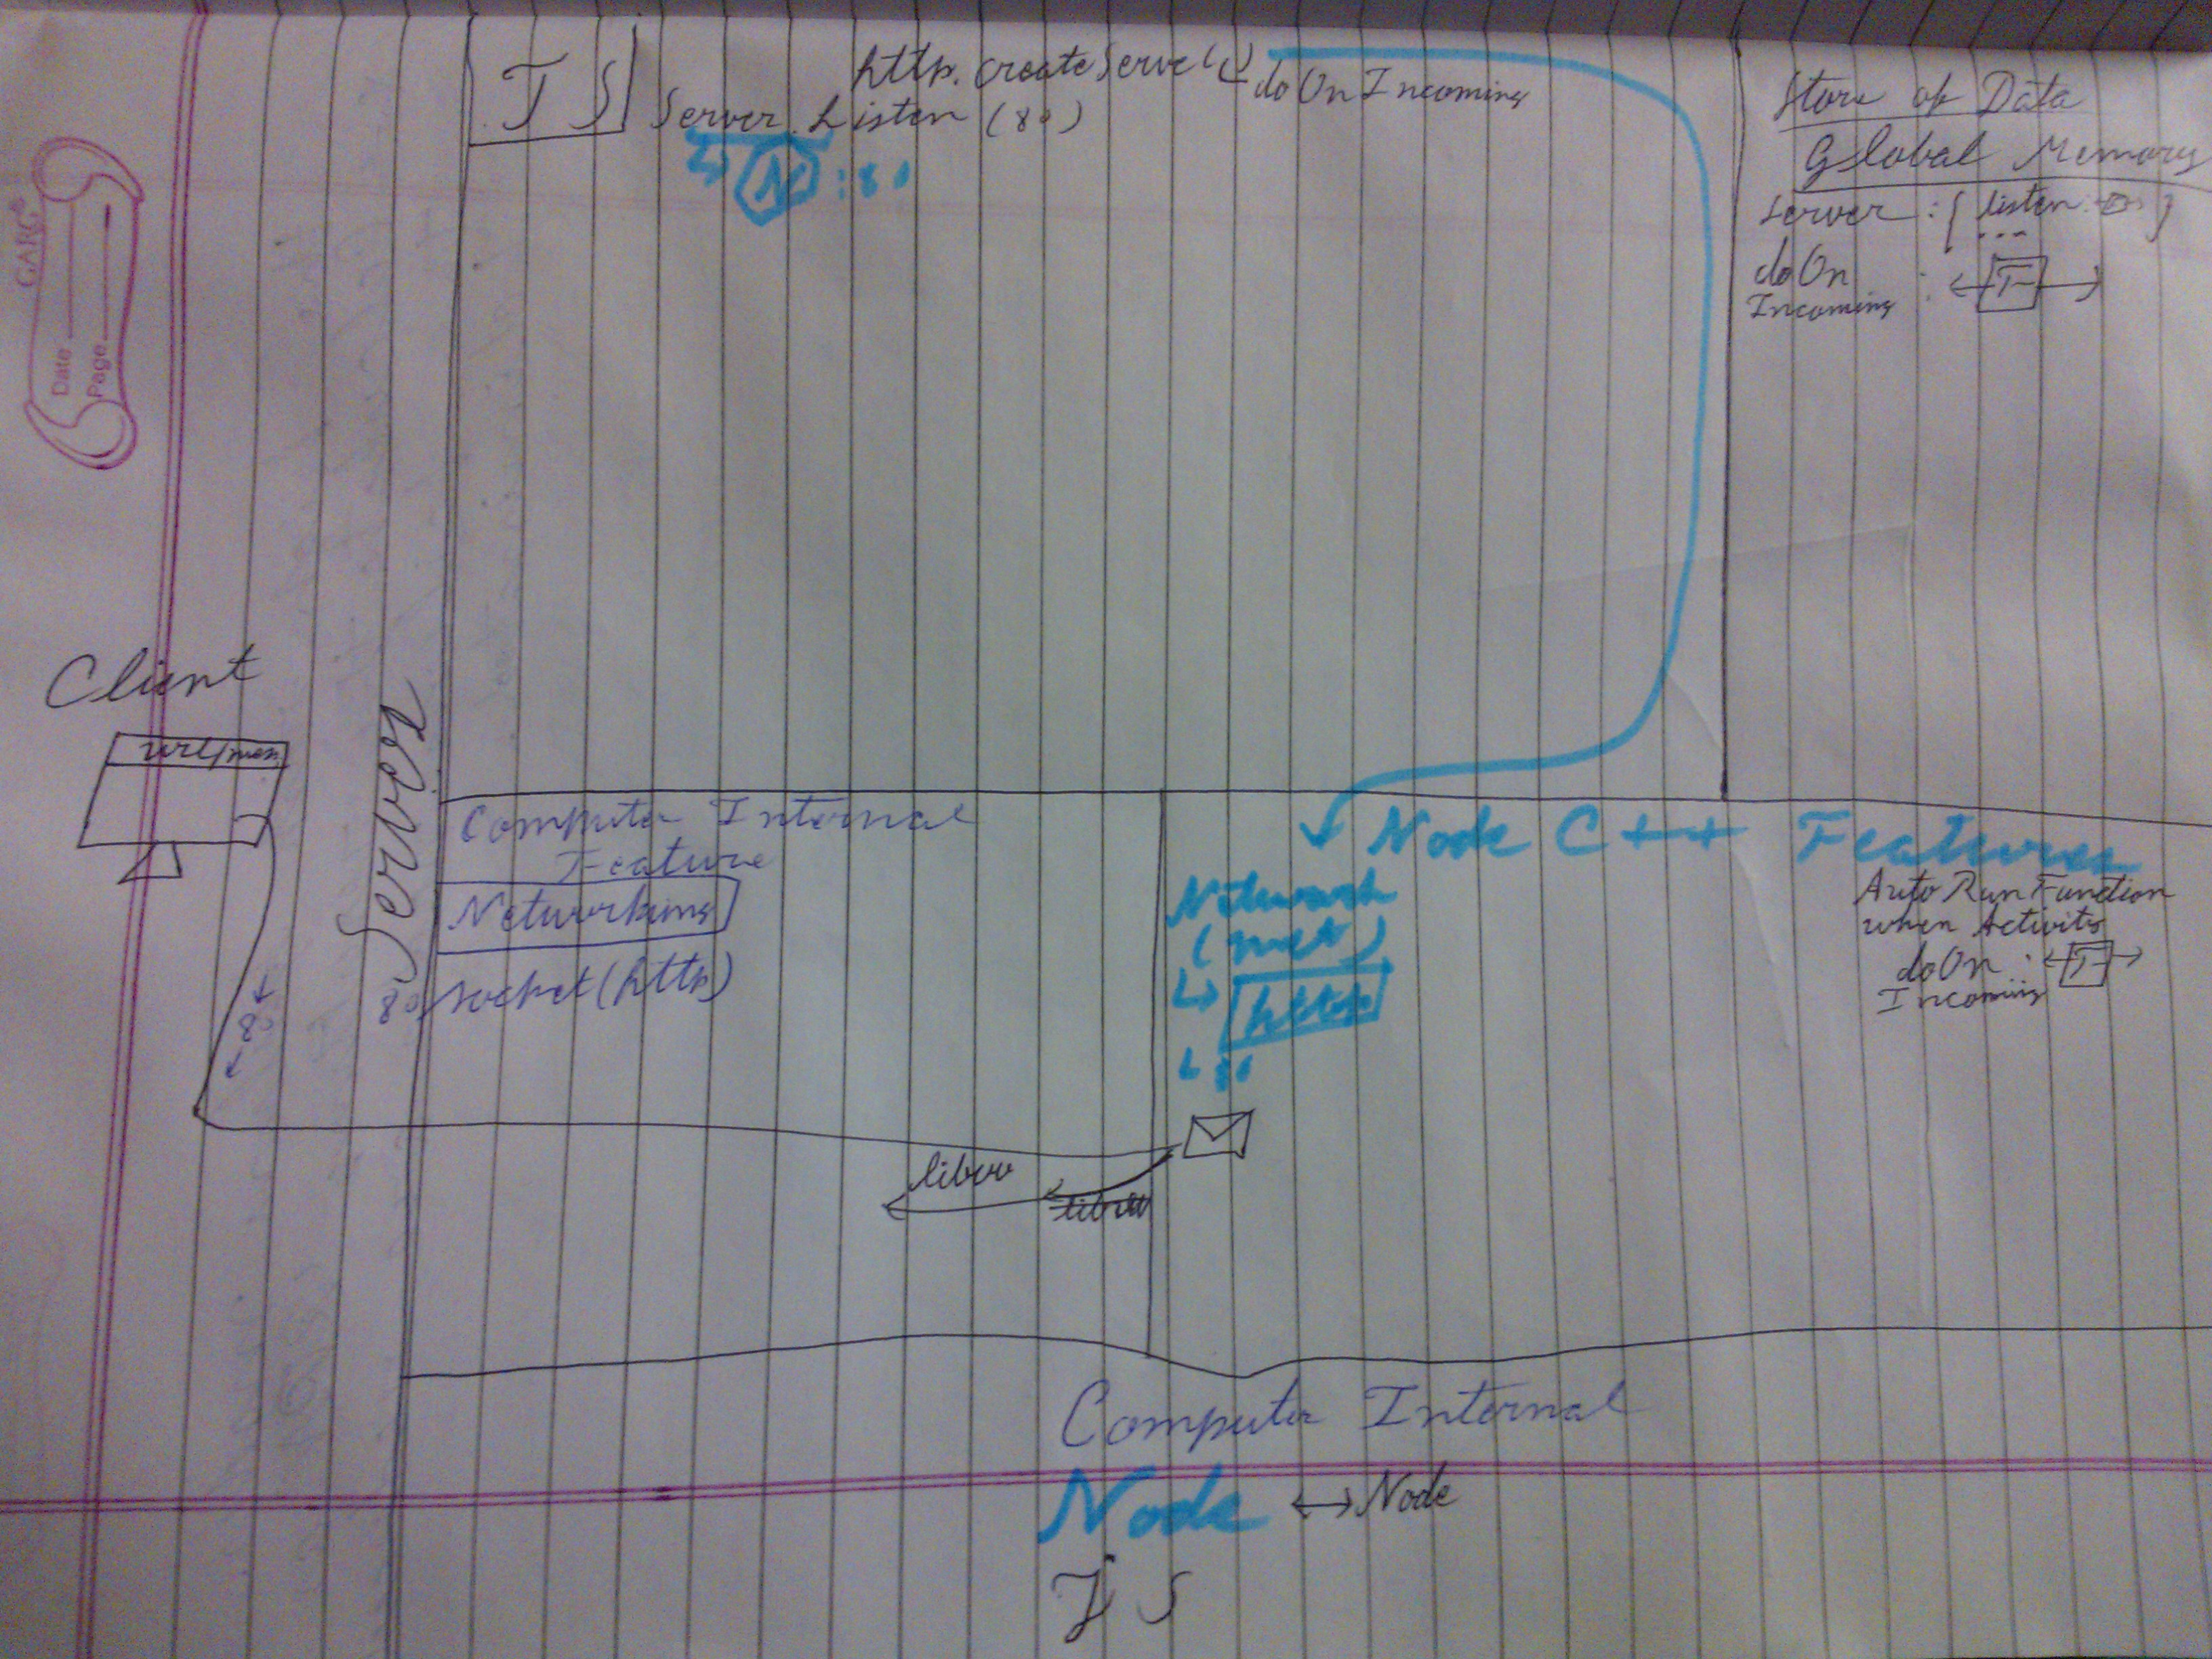 JS
http. createServer()
doOnIncoming
Server. Listen (80)
↳ N :80
Store of Data
Global Memory
server : { listen: }
...
doOn :
Incoming
Client
url/
80
Server
80
Computer Internal
Feature
Networking
socket (http)
Node C++ Features
Network
(net)
↳ http
↳ 80
Auto Run Function
when Activity
doOn :
Incoming
libuv
Computer Internal
Node ↔ Node
JS
GARG®
Date
Page